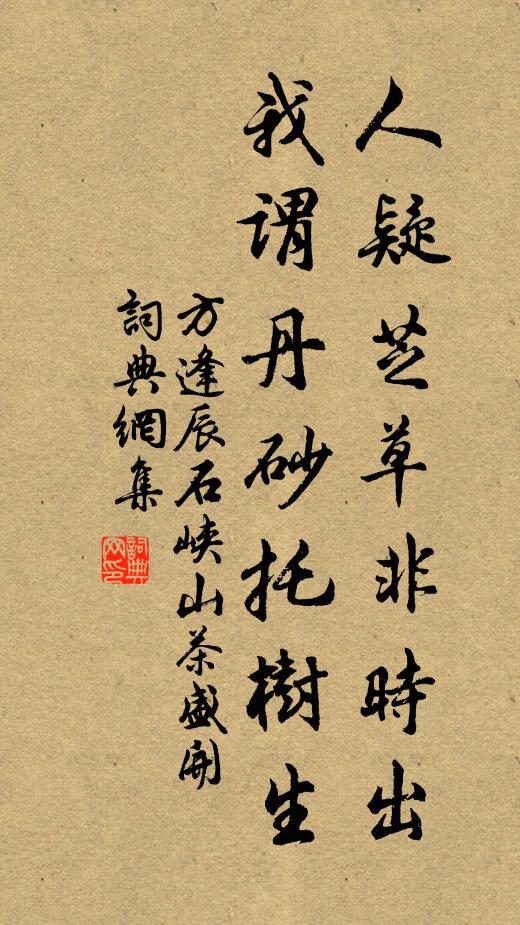 人疑芝草非時出
我謂丹砂托樹生
方逢辰石峽山茶盛開
詞典網集
詞典網印